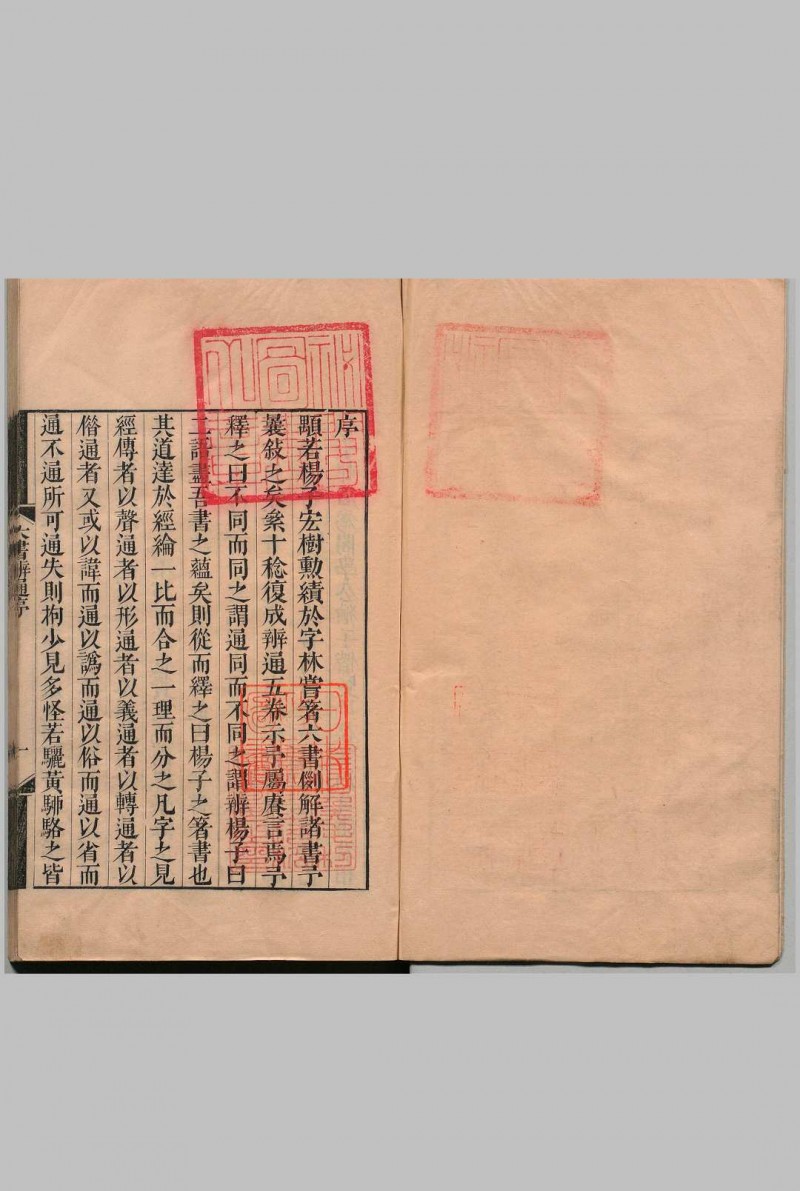 序
顒若楊子宏樹勲績於字林嘗箸六書例解諸書予
曩敍之矣絫十稔復成辨通五卷示予屬賡言焉予
釋之曰不同而同之謂通同而不同之謂辨楊子曰
二語盡吾書之蘊矣則從而釋之曰楊子之箸書也
其道達於經綸一比而合之一理而分之凡字之見
經傳者以聲通者以形通者以義通者以轉通者以
偺通者又或以諱而通以譌而通以俗而通以省而
通不通所可通失則拘少見多怪若驪黃騂駱之皆
六書辨通序
一